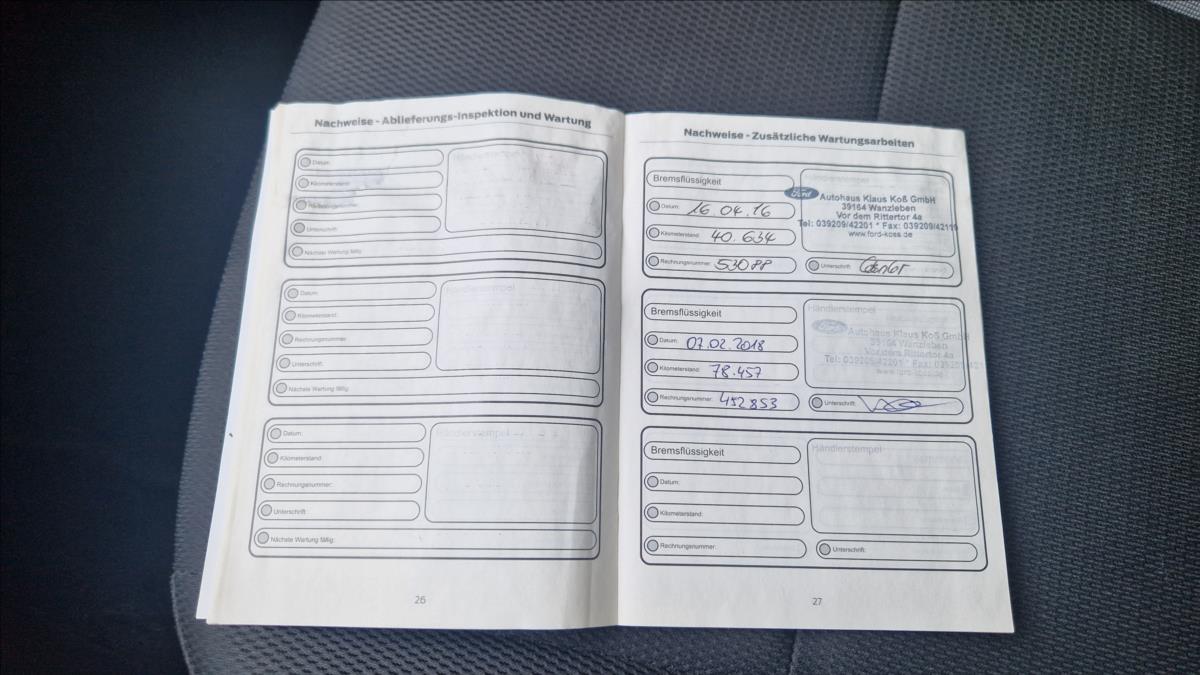 Nachweise - Ablieferungs-Inspektion und Wartung
Datum:
Kilometerstand:
Rechnungsnummer:
Unterschrift:
Nächste Wartung fällig:
Händlerstempel
Datum:
Kilometerstand:
Rechnungsnummer:
Unterschrift:
Nächste Wartung fällig:
Händlerstempel
Datum:
Kilometerstand:
Rechnungsnummer:
Unterschrift:
Nächste Wartung fällig:
Händlerstempel
26
Nachweise - Zusätzliche Wartungsarbeiten
Bremsflüssigkeit
Datum: 16.04.16
Kilometerstand: 40.634
Rechnungsnummer:
Händlerstempel
Ford
Autohaus Klaus Koß GmbH
39164 Wanzleben
Vor dem Rittertor 4a
Tel: 039209/42201 * Fax: 039209/42119
www.ford-koss.de
Unterschrift:
Bremsflüssigkeit
Datum: 07.02.2018
Kilometerstand: 78.457
Rechnungsnummer: 452853
Händlerstempel
Ford
Autohaus Klaus Koß GmbH
39164 Wanzleben
Vor dem Rittertor 4a
Tel: 039209/42201 * Fax: 039209/421
www.ford-koss.de
Unterschrift:
Bremsflüssigkeit
Datum:
Kilometerstand:
Rechnungsnummer:
Händlerstempel
Unterschrift:
27